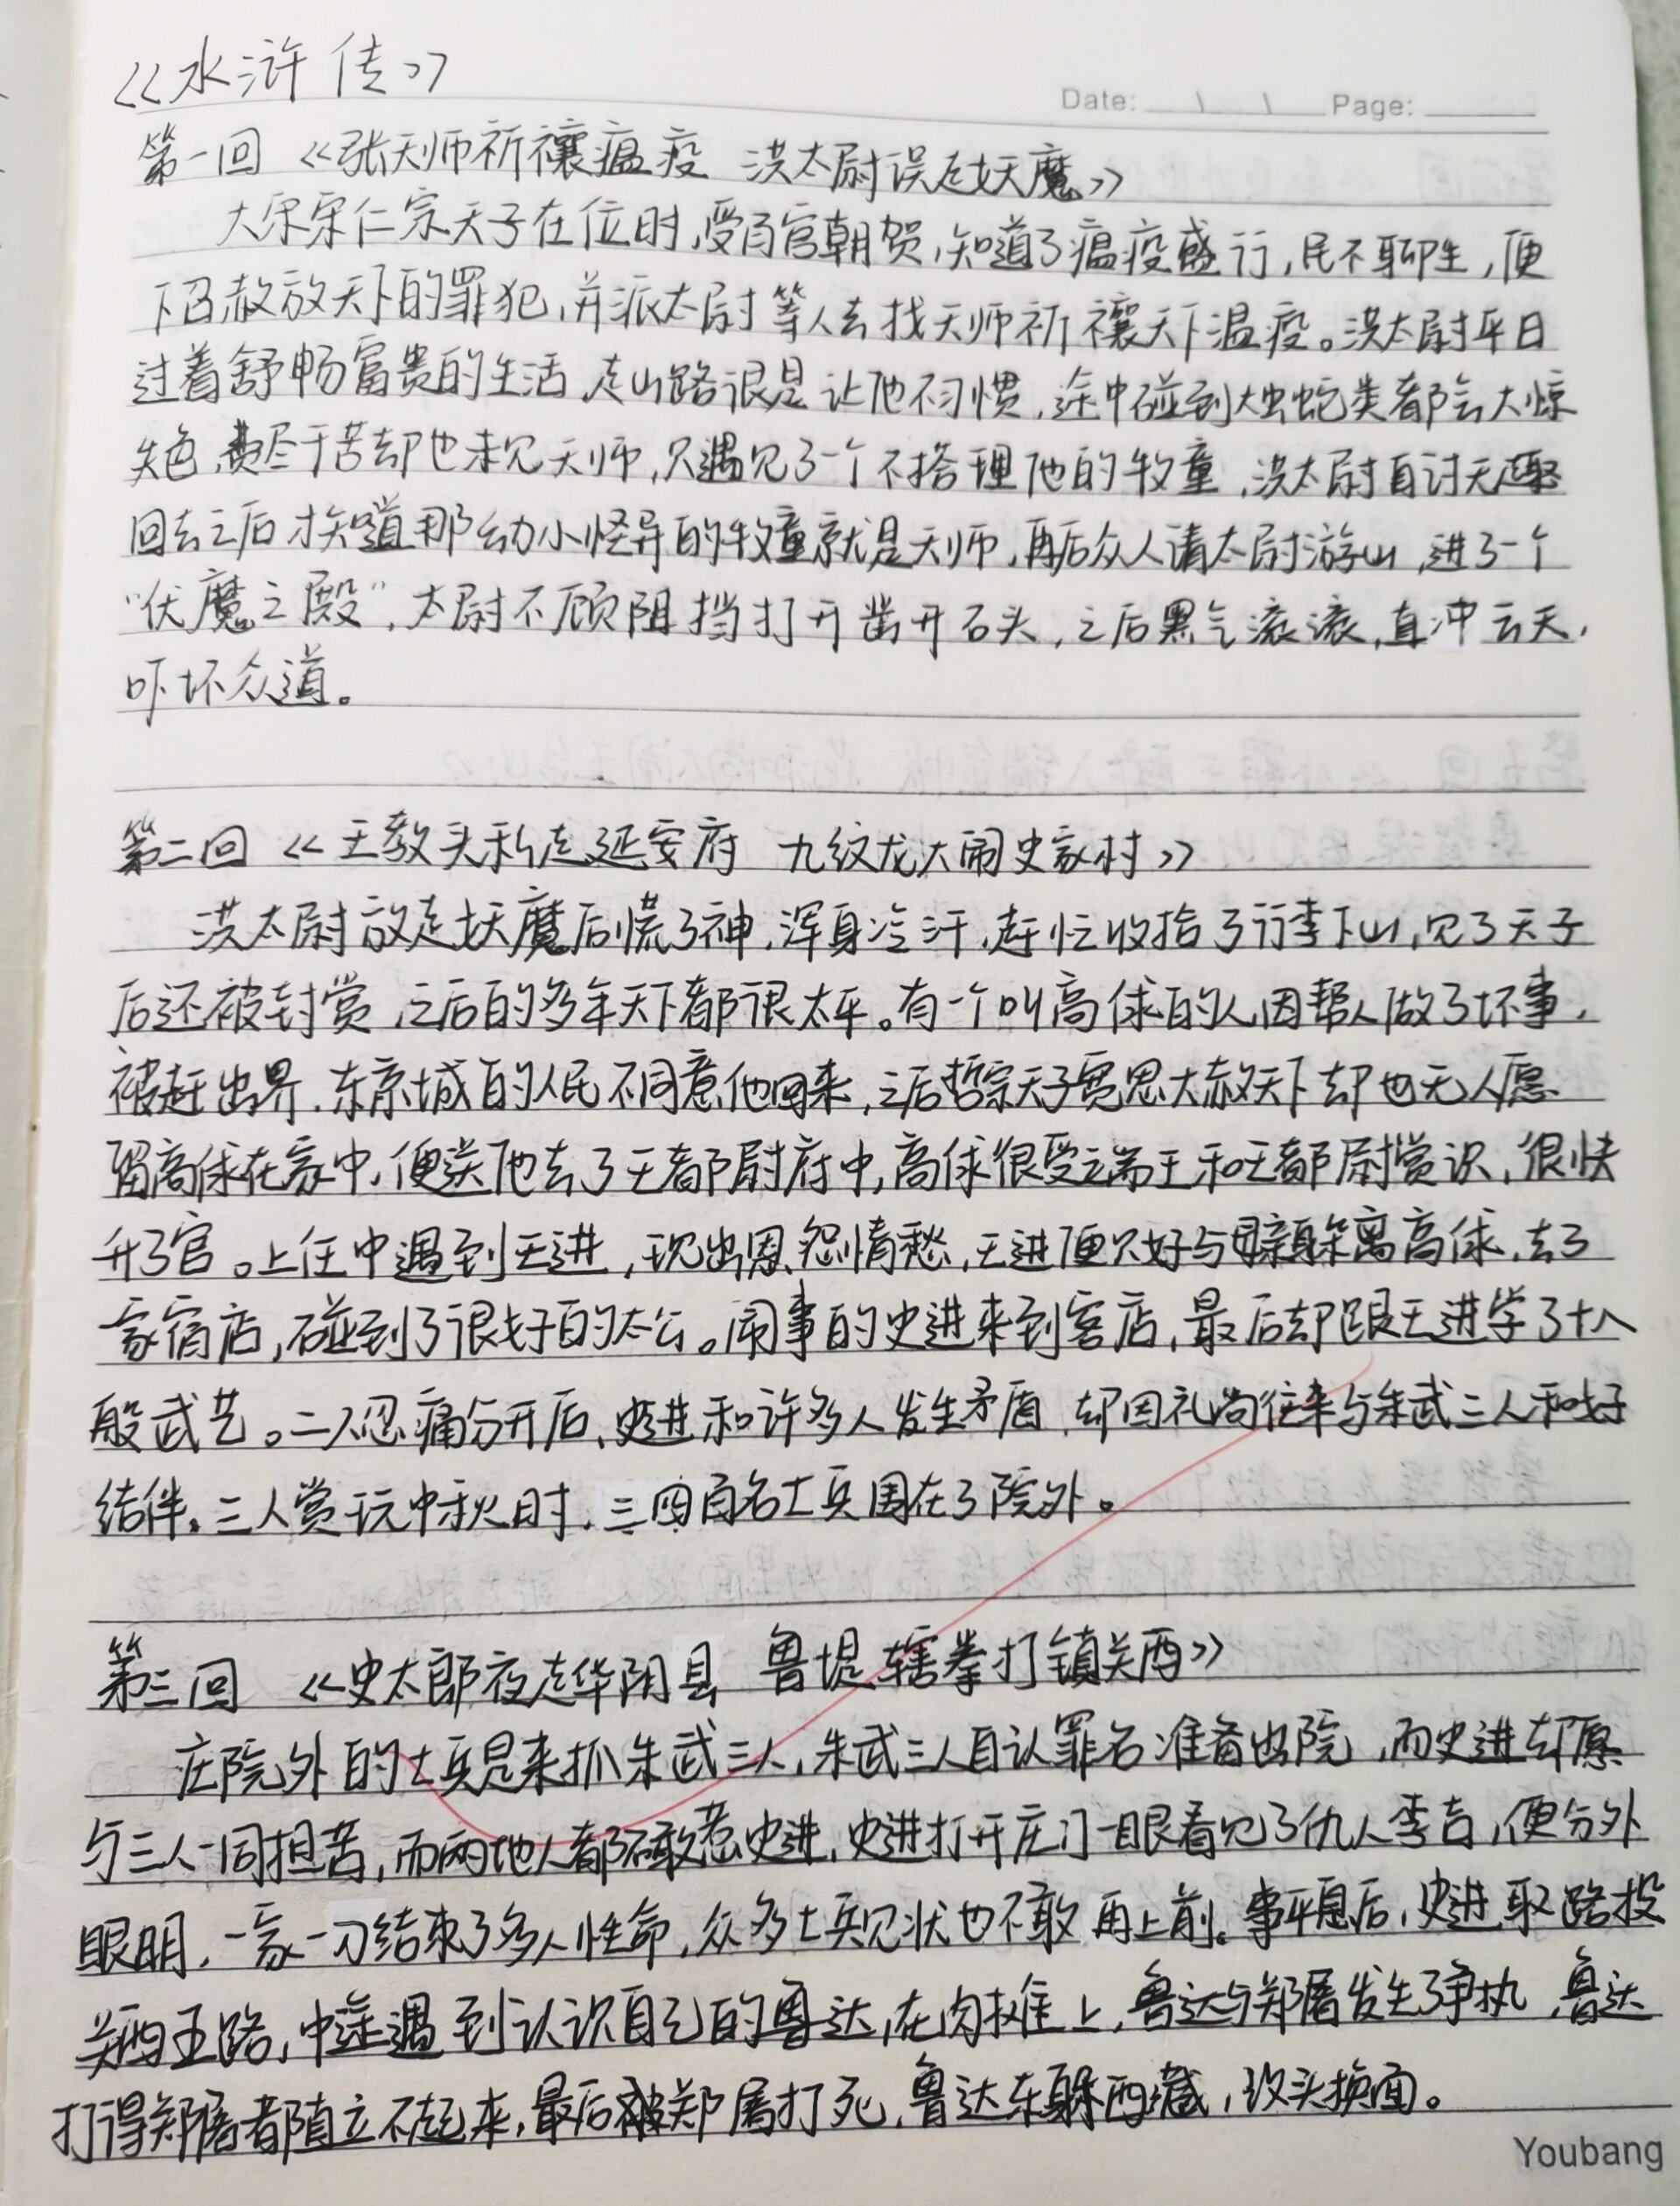 《水浒传》
Date: Page:
第一回 《张天师祈禳瘟疫 洪太尉误走妖魔》
大宋宋仁宗天子在位时,受百官朝贺,知道了瘟疫盛行,民不聊生,便
下召赦放天下的罪犯,并派太尉等人去找天师祈禳天下温疫。洪太尉平日
过着舒畅富贵的生活,走山路很是让他不习惯,途中碰到大虫蛇类都会大惊
失色,费尽千苦却也未见天师,只遇见了一个不搭理他的牧童,洪太尉自讨无趣
回去之后才知道那幼小怪异的牧童就是天师,再后众人请太尉游山,进了一个
“伏魔之殿”,太尉不顾阻挡打开凿开石头,之后黑气滚滚,直冲云天,
吓坏众道。
第二回 《王教头私走延安府 九纹龙大闹史家村》
洪太尉放走妖魔后慌了神,浑身冷汗,赶忙收拾了行李下山,见了天子
后还被封赏,之后的多年天下都很太平。有一个叫高俅的人因帮人做了坏事,
被赶出界,东京城的人民不同意他回来,之后哲宗天子宽恩大赦天下却也无人愿
留高俅在家中,便送他去了王都尉府中,高俅很受端王和王都尉赏识,很快
升了官。上任中遇到王进,现出恩怨情愁,王进便只好与母亲躲离高俅,去了
家宿店,碰到了很好的太公。闹事的史进来到客店,最后却跟王进学了十八
般武艺。二人忍痛分开后,史进和许多人发生矛盾,却因礼尚往来与朱武三人和好
结伴。三人赏玩中秋时,三四百名士兵围在了院外。
第三回 《史太郎夜走华阴县 鲁堤辖拳打镇关西》
庄院外的士兵是来抓朱武三人,朱武三人自认罪名准备出院,而史进却愿
与三人一同担苦,而两地人都不敢惹史进,史进打开庄门一眼看见了仇人李吉,便分外
眼明,一家一刀结束了多人性命,众多士兵见状也不敢再上前。事平息后,史进取路投
关西五路,中途遇到认识自己的鲁达,在肉摊上,鲁达与郑屠发生了争执,鲁达
打得郑屠都直立不起来,最后被郑屠打死,鲁达东躲西藏,改头换面。
Youbang